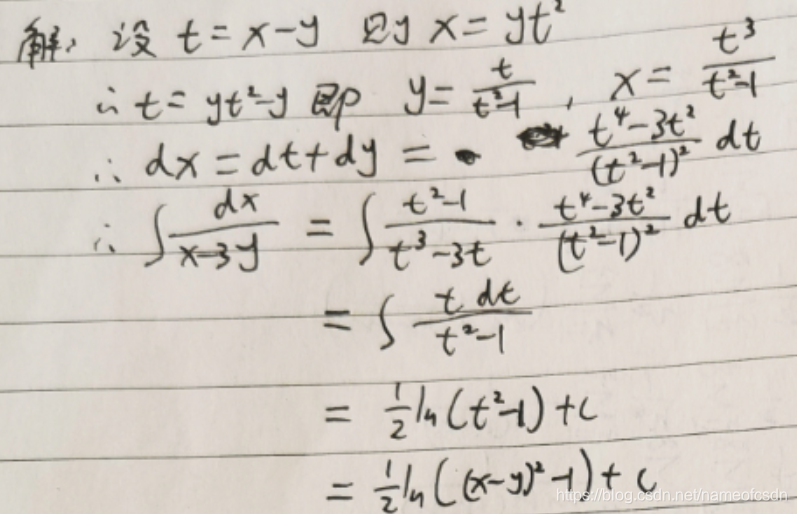 解: 设 t = x-y 则 x = yt²
∴ t = yt²-y 即 y = t/(t²-1), x = t³/(t²-1)
∴ dx = dt+dy = (t⁴-3t²)/(t²-1)² dt
∴ ∫ dx/(x-3y) = ∫ (t²-1)/(t³-3t) · (t⁴-3t²)/(t²-1)² dt
= ∫ t dt/(t²-1)
= ½ ln(t²-1)+c
= ½ ln((x-y)²-1)+c
https://blog.csdn.net/nameofcsdn